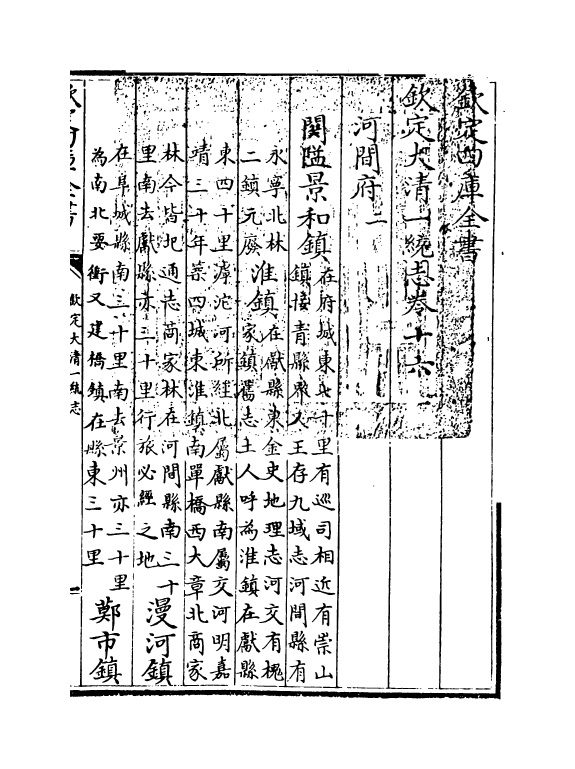 欽定四庫全書
欽定大清一統志卷十六
河間府二
關隘景和鎮
在府城東七十里有巡司相近有崇山
鎮接青縣界又王存九域志河間縣有
永寧北林
二鎮元廢
淮鎮
在獻縣東金史地理志河交有槐
家鎮舊志土人呼為淮鎮在獻縣
東四十里滹沱河所經北屬獻縣南屬交河明嘉
靖三十年築四城東淮鎮南單橋西大章北商家
林今皆圮通志商家林在河間縣南三十
里南去獻縣亦三十里行旅必經之地
漫河鎮
在阜城縣南三十里南去景州亦三十里
為南北要衝又建橋鎮在縣東三十里
鄭市鎮
欽定大清一統志